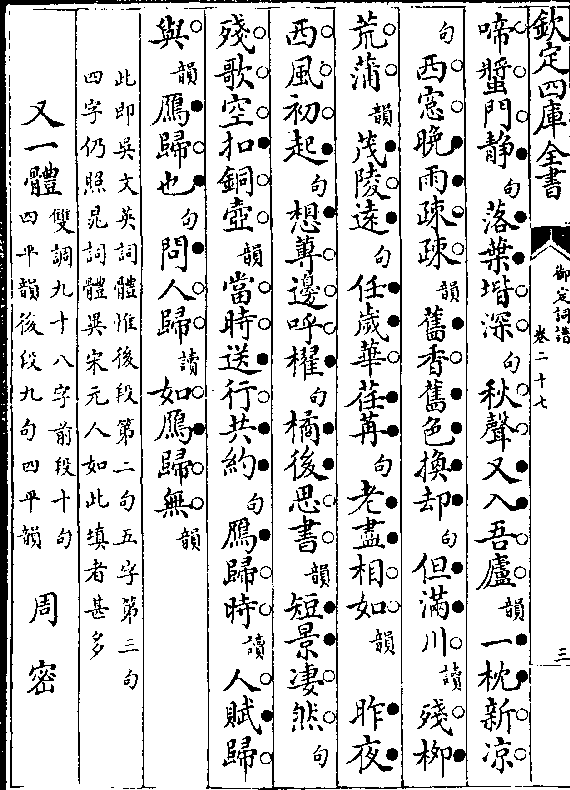 欽定四庫全書
御定詞譜
卷二十七
三
啼螿門静句落葉堦深句秋聲又入吾廬韻一枕新凉
句西窓晚雨疎疎韻舊香舊色換却句但滿川讀殘栁
荒蒲韻茂陵遠句任歲華荏苒句老盡相如韻昨夜
西風初起句想蓴邊呼櫂句橘後思書韻短景凄然句
殘歌空扣銅壺韻當時送行共約句鴈歸時讀人賦歸
與韻鴈歸也句問人歸讀如鴈歸無韻
此即吳文英詞體惟後段第二句五字第三句
四字仍照晁詞體異宋元人如此填者甚多
又一體雙調九十八字前段十句
四平韻後段九句四平韻周密